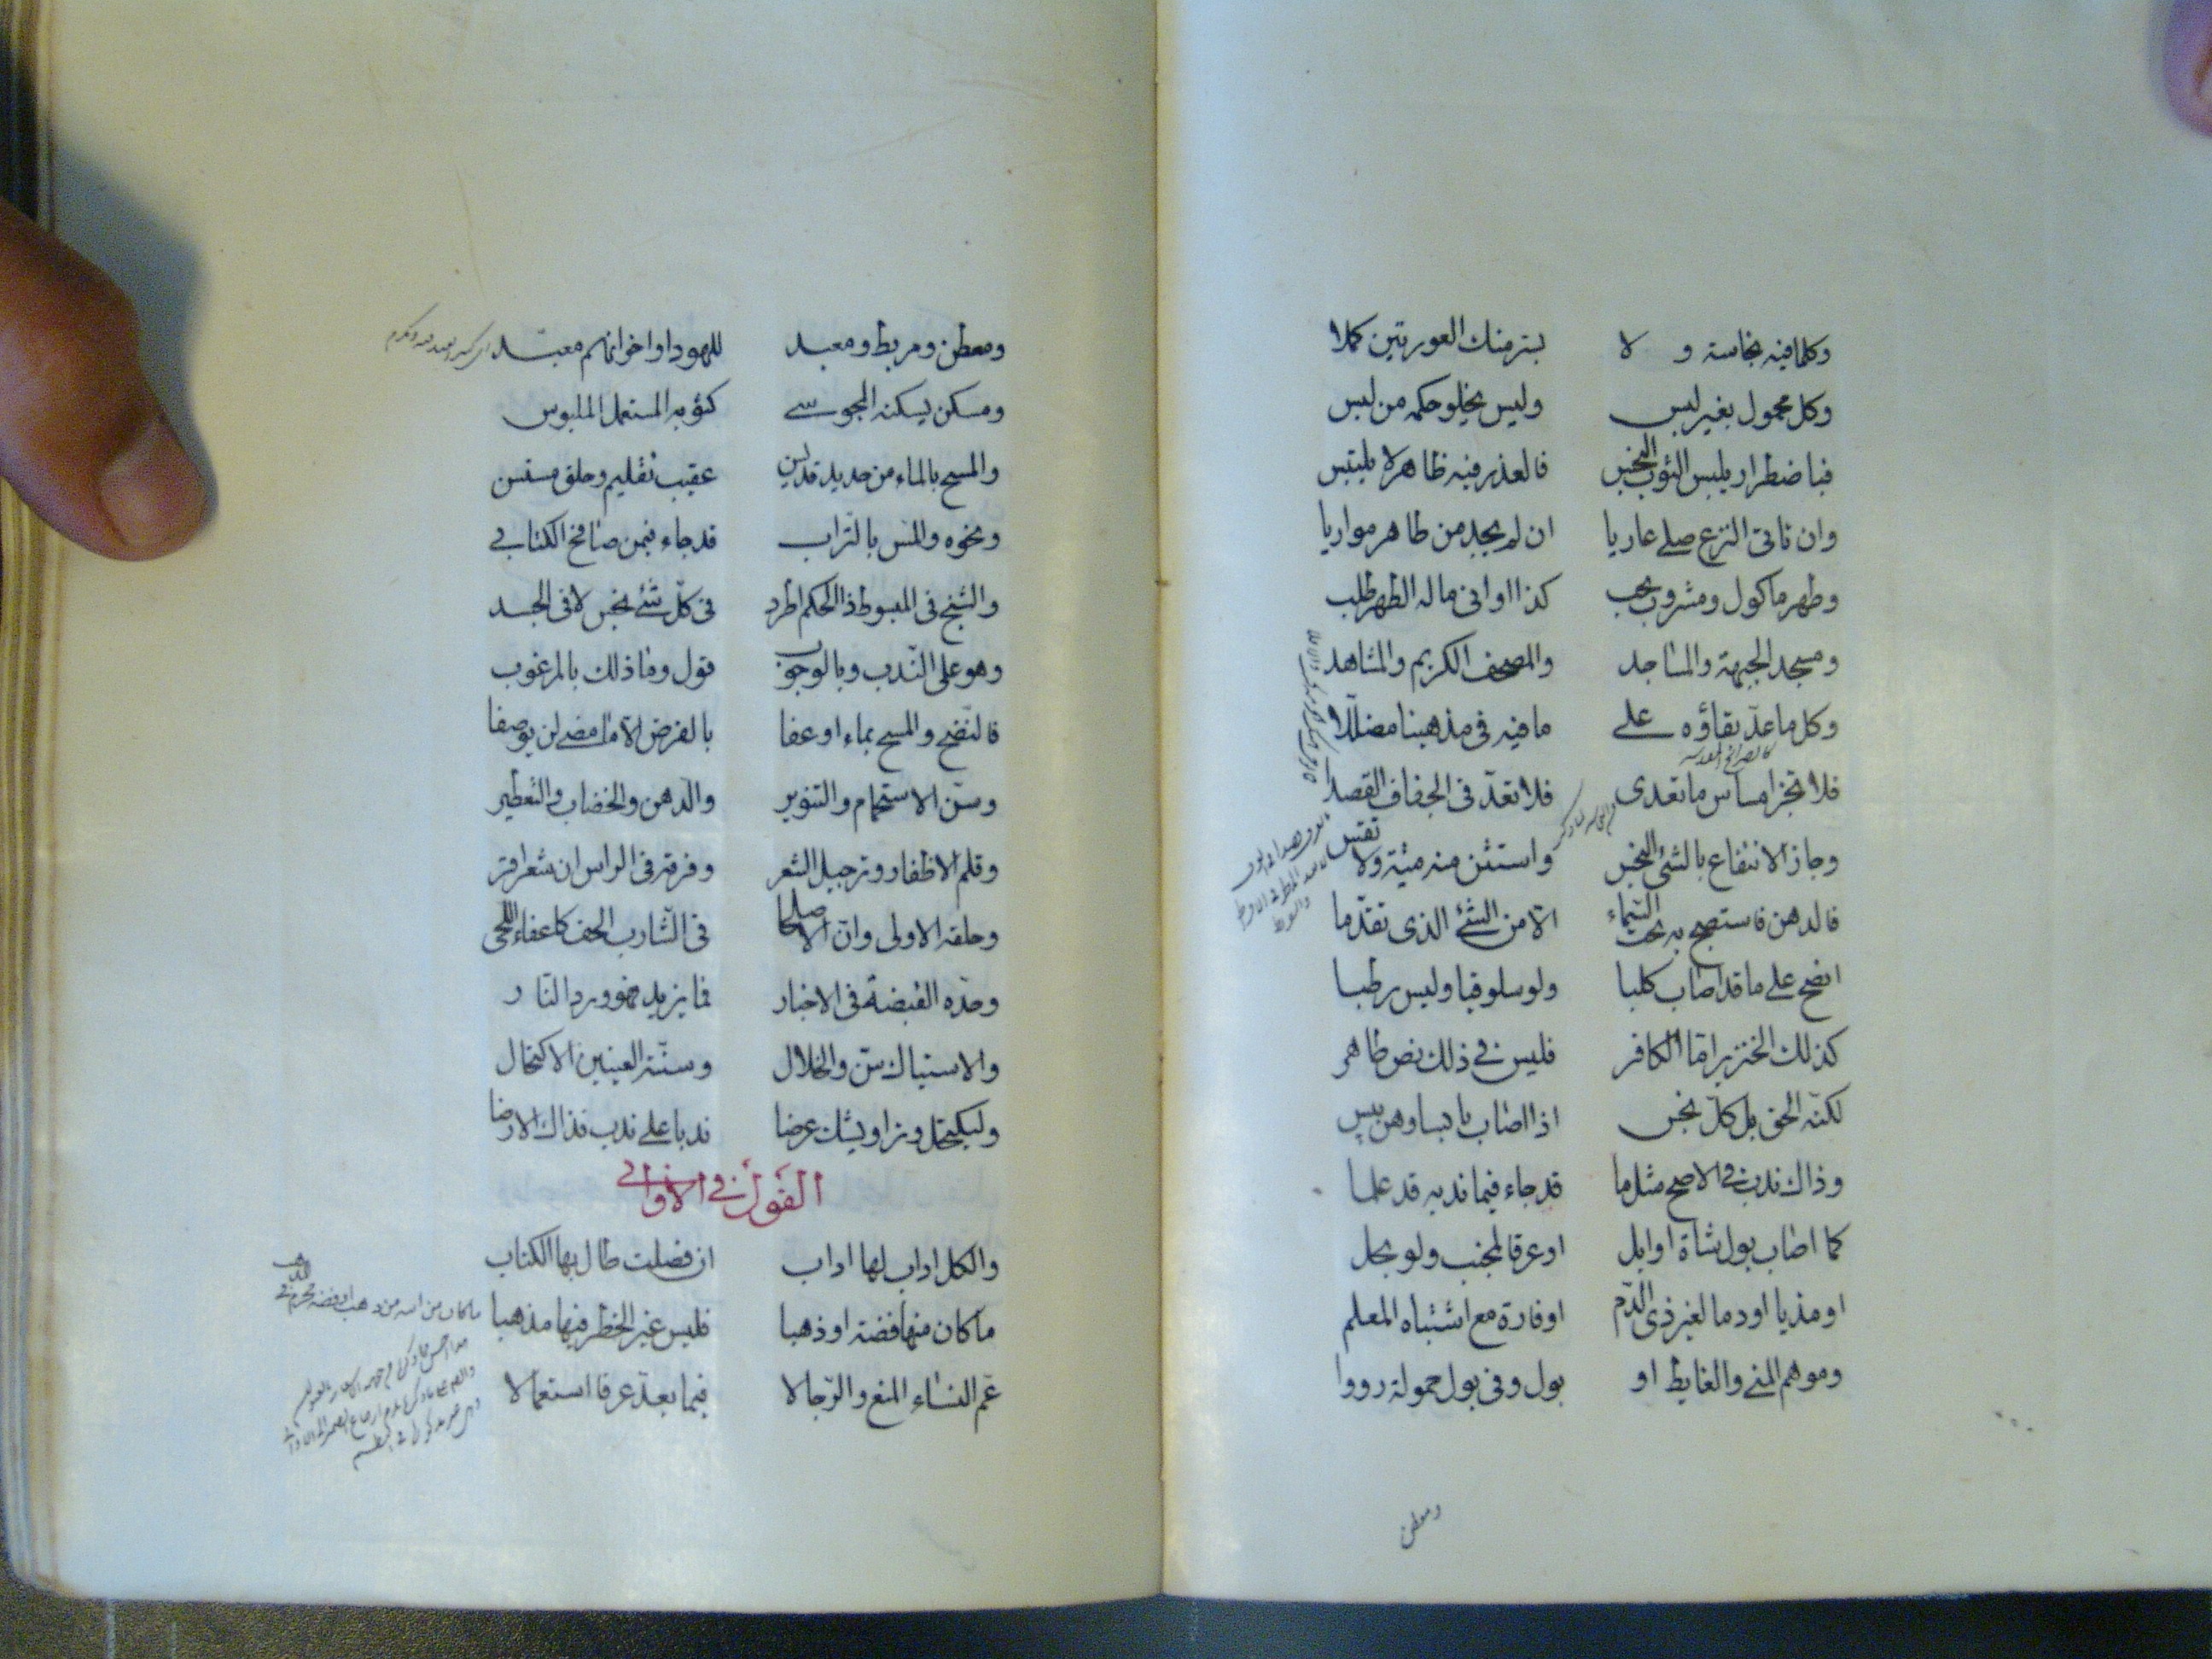 وكلما فيه نجاسة و لا يستر منك العورتين كملا
وكل محمول بغير لبس وليس يخلو حكمه من لبس
فباضطرار يلبس الثوب النجس فالعذر فيه ظاهر لا يلتبس
وان تاتى النزع صلے عاريا ان لم يجد من طاهر مواريا
وطهر ماكول ومشروب يجب كذا اوانى ما له الطهر طلب
ومسجد الجبهة والمساجد والمصحف الكريم والمشاهد
وكل ما عدّ بقاؤه على ما فيه فى مذهبنا مضلّلا
فلا تجز امساس ما تعدى فلا تعدّ فى الجفاف القصدا
وجاز الانتفاع بالشئ النجس واستثن منه ميتة ولا تقس
فالدهن فاستصبح به تحت السّماء الّا من الشئ الذى تقدّما
انضح على ما قد اصاب كلبا ولو سلوقيا وليس رطبا
كذلك الخنزير امّا الكافر فليس فے ذلك نص ظاهر
لكنّه الحق بل كلّ نجس اذا اصاب يابسا وهن يبس
وذاك ندب فے الاصح مثل ما قد جاء فيما ندبه قد علما
كما اصاب بول شاة او ابل او عرقا لمجنب ولو بحل
او مذيا او دما لغير ذى الدّم او فارة مع اشتباه المعلم
وموهم المنے والغايط او بول وفى بول حمولة رووا
ومعطن
ومعطن ومربط ومعبد لليهود او اخوانهم معبّد
ومسكن يسكنه المجوسے كثوبه المستعمل الملبوس
والمسح بالماء من حديد قد سن عقيب تقليم وحلق مستسن
ونحوه والمسّ بالتّراب قد جاء فيمن صافح الكتابے
والشيخ فى المبسوط ذا الحكم اطرد فى كلّ شئ نجس لا فى الجسد
وهو على النّدب وبالوجوب قول وما ذلك بالمرغوب
فالنّضح والمسح بماء او عفا بالفرض الّا ما مضے لن يوصفا
وسنّ الاستحمام والتنوير والدّهن والخضاب والتّعطير
وقلم الاظفار وترجيل الشعر وفرقه فى الراس ان شعر افتر
وحلقه الاولى وانّ الاصلحا فى الشّارب الحف كاعفاء اللّحى
وحدّه القبضة فى الاخبار فما يزيد فهو ورد النّار
والاستياك سنّ والخلال وسنّة العينين الاكتحال
وليكتحل وترا ويستك عرضا ندبا على ندب فذاك الارضا
القول فے الاوانے
والكل اداب لها اداب ان فصلت طال بها الكتاب
ما كان منها فضة او ذهبا فليس غير الحظر فيها مذهبا
عمّ النساء المنع والرّجالا فيما يعدّ عرفا استعمالا